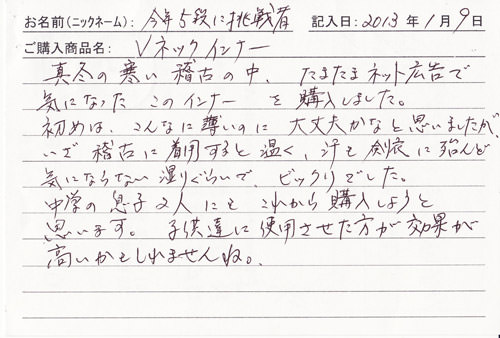 お名前(ニックネーム): 今年5段に挑戦者 記入日: 2013年1月9日
ご購入商品名: Vネックインナー
真冬の寒い稽古の中、たまたまネット広告で
気になったこのインナーを購入しました。
初めは、こんなに薄いのに大丈夫かなと思いましたが、
いざ稽古に着用すると温く、汗も剣衣に殆んど
気にならない湿りぐらいで、ビックリでした。
中学の息子2人にもこれから購入しようと
思います。子供達に使用させた方が効果が
高いかもしれませんね。